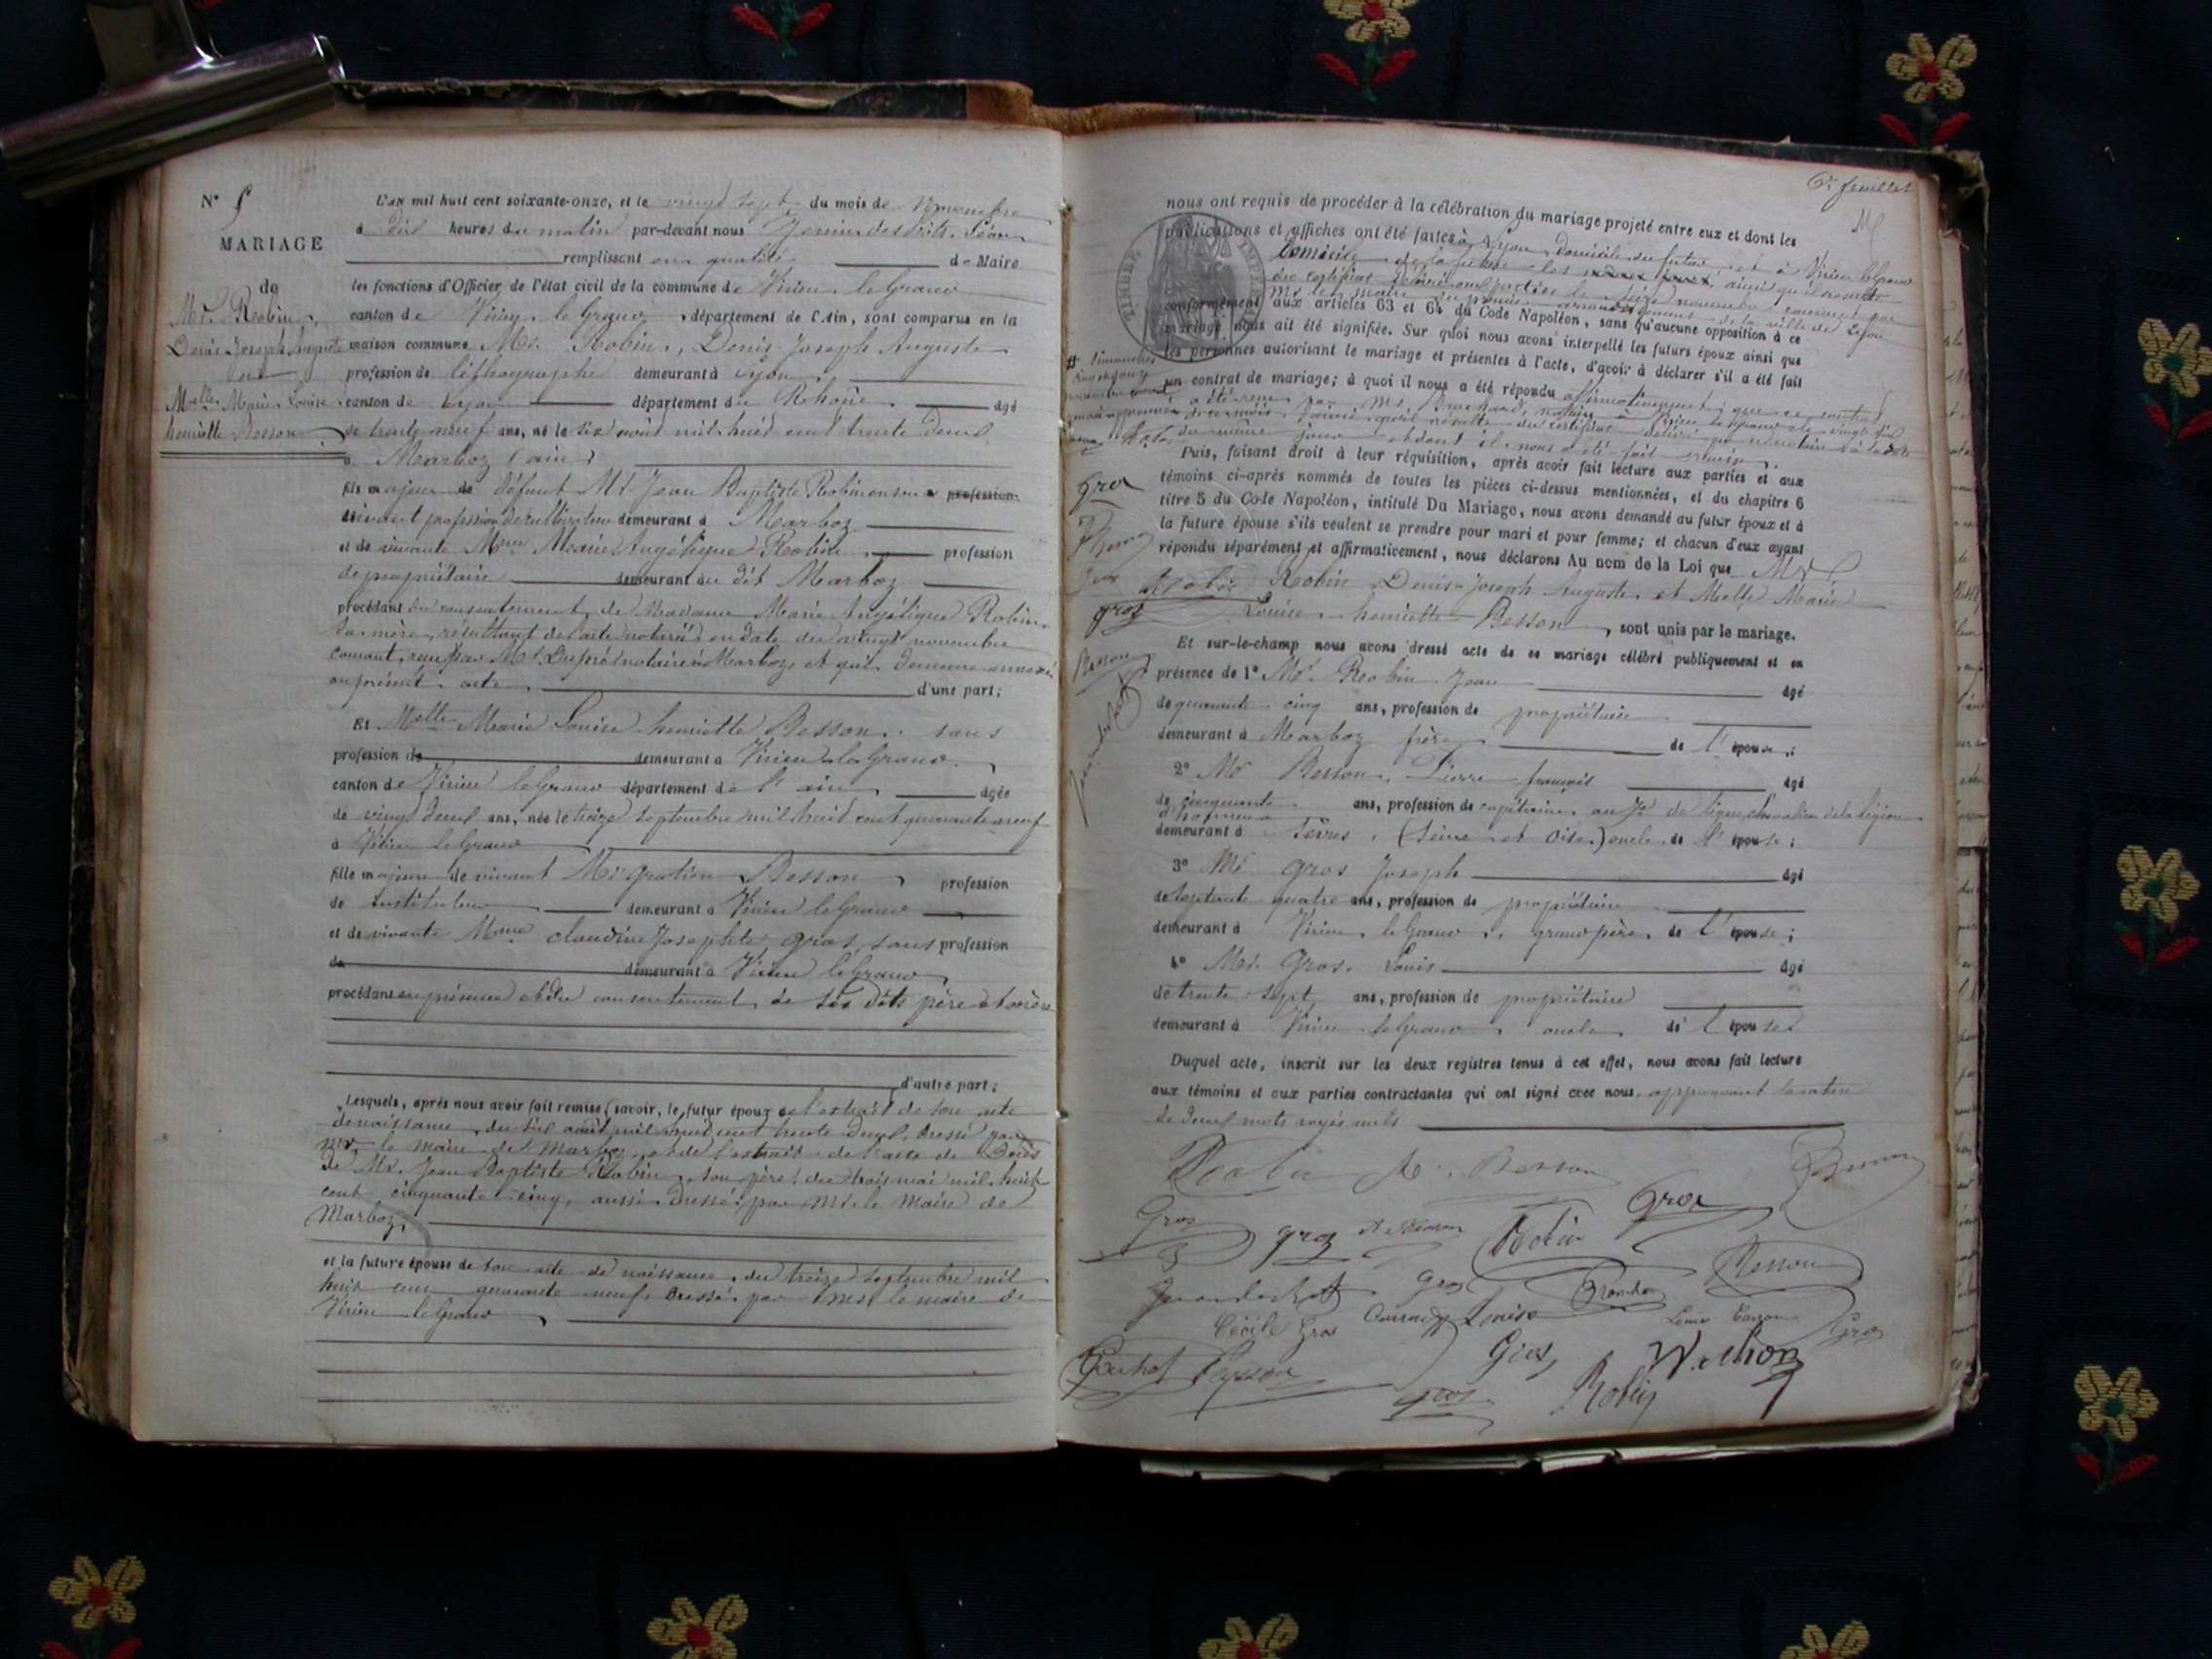 N° 5
MARIAGE
de
Mr. Robin,
Denis Joseph Auguste
et
Melle Marie Louise
henriette Besson
L'an mil huit cent soixante-onze, et le vingt sept du mois de Novembre
à dix heures du matin par-devant nous
remplissant en qualité de Maire
les fonctions d'Officier de l'état civil de la commune de Virieu le Grand
canton de Virieu le Grand, département de l'Ain, sont comparus en la
maison commune Mr. Robin, Denis Joseph Auguste
profession de lithographe demeurant à Lyon,
canton de Lyon département du Rhône âgé
de trente neuf ans, né le six août mil huit cent trente deux
à Marboz (ain)
fils majeur de défunt Mr. Jean Baptiste Robin en son profession
vivant profession de cultivateur demeurant à Marboz
et de vivante Mme Marie Angélique Robin profession
de propriétaire demeurant au dit Marboz
procédant du consentement de Madame Marie Angélique Robin
sa mère, résultant de l'acte notarié en date du vingt novembre
courant, reçu par Me Dupré notaire à Marboz, et qui demeure annexé
au présent acte d'une part;
Et Melle Marie Louise henriette Besson, sans
profession de demeurant à Virieu le Grand
canton de Virieu le Grand département de l'ain âgée
de vingt deux ans, née le treize septembre mil huit cent quarante neuf
à Virieu le Grand
fille majeure de vivant Mr. gratien Besson, profession
de instituteur demeurant à Virieu le Grand
et de vivante Mme claudine Josephte gros, sans profession
de demeurant à Virieu le Grand
procédant en présence et du consentement de ses dits père et mère
d'autre part;
Lesquels, après nous avoir fait remise, savoir, le futur époux de l'extrait de son acte
de naissance, du six août mil huit cent trente deux, dressé par
Mr le maire de Marboz, et de l'extrait de l'acte de décès
de Mr. Jean Baptiste Robin, son père, du trois mai mil huit
cent cinquante cinq, aussi dressé par Mr. le Maire de
Marboz,
et la future épouse de son acte de naissance, du treize septembre mil
huit cent quarante neuf, dressé par Mr. le maire de
Virieu le Grand
6e feuillet
nous ont requis de procéder à la célébration du mariage projeté entre eux et dont les
publications et affiches ont été faites à Lyon, domicile du futur et à Virieu le Grand
domicile de la future les ainsi qu'il résulte
du certificat délivré novembre courant par
Mr le maire du premier arrondissement de la ville de Lyon
conformément aux articles 63 et 64 du Code Napoléon, sans qu'aucune opposition à ce
mariage nous ait été signifiée. Sur quoi nous avons interpellé les futurs époux ainsi que
les personnes autorisant le mariage et présentes à l'acte, d'avoir à déclarer s'il a été fait
un contrat de mariage; à quoi il nous a été répondu affirmativement; que ce contrat
a été reçu par Me. notaire à Virieu le Grand le vingt six
de ce mois, résulte du certificat délivré par ce notaire à la date
du même jour et dont il nous a été fait remise.
Puis, faisant droit à leur réquisition, après avoir fait lecture aux parties et aux
témoins ci-après nommés de toutes les pièces ci-dessus mentionnées, et du chapitre 6
titre 5 du Code Napoléon, intitulé Du Mariage, nous avons demandé au futur époux et à
la future épouse s'ils veulent se prendre pour mari et pour femme; et chacun d'eux ayant
répondu séparément et affirmativement, nous déclarons Au nom de la Loi que Mr
Robin Denis-Joseph Auguste, et Melle Marie
Louise henriette Besson, sont unis par le mariage.
Et sur-le-champ nous avons dressé acte de ce mariage célébré publiquement et en
présence de 1° Mr. Robin Jean âgé
de quarante cinq ans, profession de propriétaire
demeurant à Marboz frère de l'épouse;
2° Mr Besson, Pierre français âgé
de cinquante ans, profession de capitaine au de ligne chevalier de la légion
d'honneur
demeurant à Sèvres, (Seine et Oise) oncle de l'épouse;
3° Mr gros Joseph âgé
de septante quatre ans, profession de propriétaire
demeurant à Virieu le Grand, grand père, de l'épouse;
4° Mr. Gros, Louis âgé
de trente sept ans, profession de propriétaire
demeurant à Virieu le Grand, oncle de l'épouse
Duquel acte, inscrit sur les deux registres tenus à cet effet, nous avons fait lecture
aux témoins et aux parties contractantes qui ont signé avec nous, approuvant la rature
de deux mots rayés nuls
Robin Besson
Gros gros Robin Gros
gros Besson
Cécile Gros Louise
Gros
Besson Gros
gros Robin